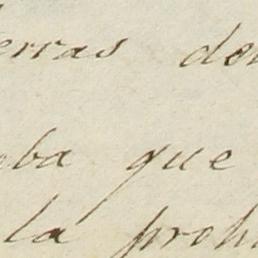 erras de
eba que
la proh